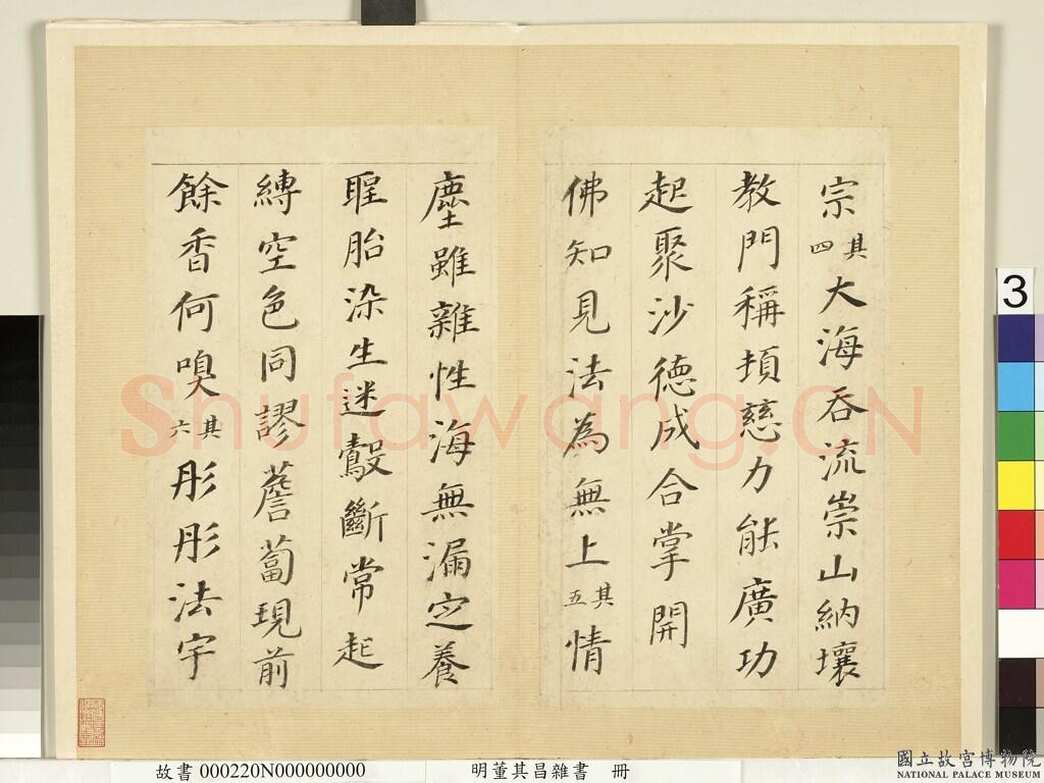 宗其四大海吞流崇山納壤
教門稱頓慈力能廣功
起聚沙德成合掌開
佛知見法為無上其五情
塵雖雜性海無漏定養
聖胎染生迷鷇斷常起
縛空色同謬薝蔔現前
餘香何嗅其六彤彤法宇
3
Shufawang.CN
國立故宮博物院
NATIONAL PALACE MUSEUM
故書 000220N000000000 明董其昌雜書 冊